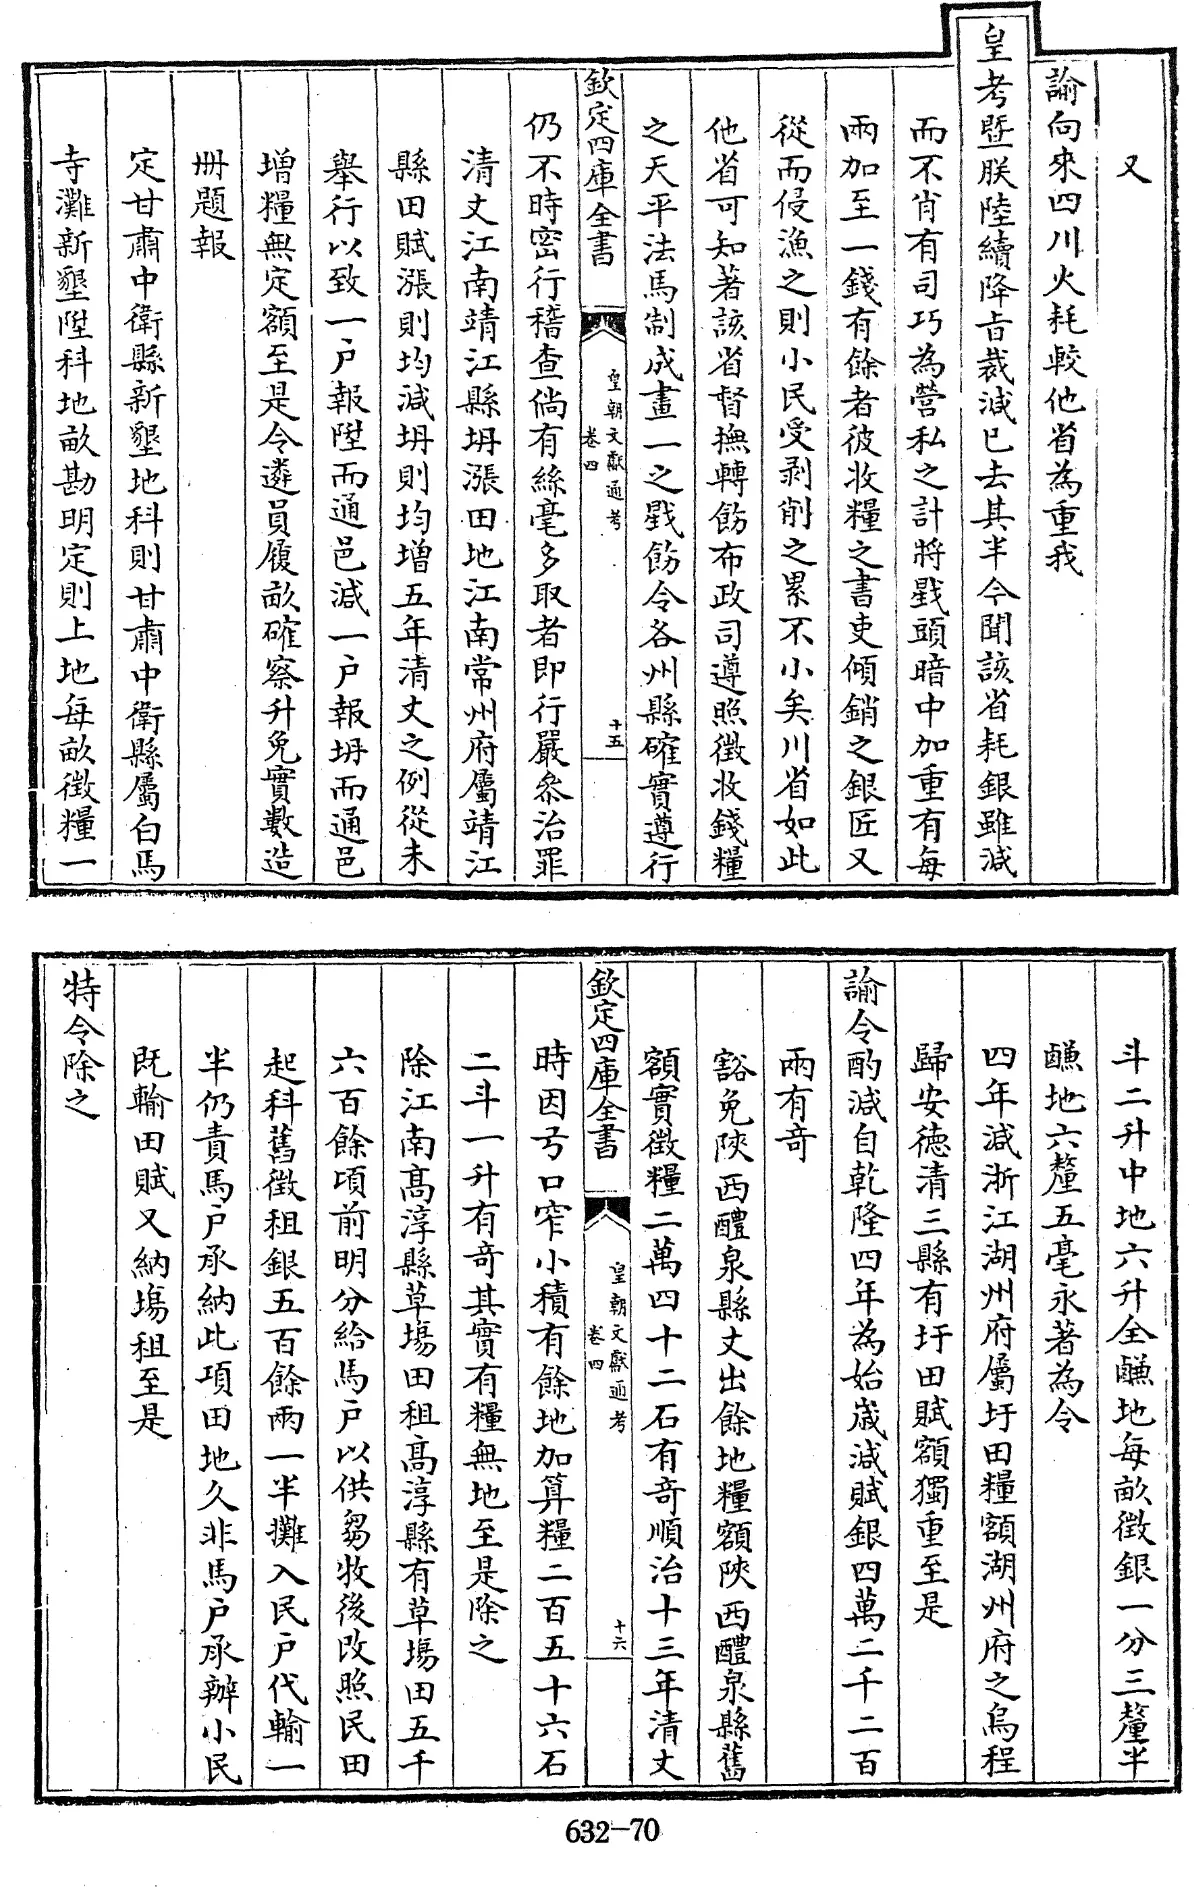 又
諭向來四川火耗較他省為重我
皇考暨朕陸續降旨裁減已去其半今聞該省耗銀雖減
而不肖有司巧為營私之計將戥頭暗中加重有每
兩加至一錢有餘者彼收糧之書吏傾銷之銀匠又
從而侵漁之則小民受剥削之累不小矣川省如此
他省可知著該省督撫轉飭布政司遵照徵收錢糧
之天平法馬制成畫一之戥飭令各州縣確實遵行
欽定四庫全書
皇朝文獻通考
卷四
十五
仍不時密行稽查倘有絲毫多取者即行嚴叅治罪
清丈江南靖江縣坍漲田地江南常州府屬靖江
縣田賦漲則均減坍則均增五年清丈之例從未
舉行以致一户報陞而通邑減一户報坍而通邑
增糧無定額至是令遴員履畝確察升免實數造
冊題報
定甘肅中衛縣新墾地科則甘肅中衛縣屬白馬
寺灘新墾陞科地畝勘明定則上地每畝徵糧一
斗二升中地六升全鹻地每畝徵銀一分三釐半
鹻地六釐五毫永著為令
四年減浙江湖州府屬圩田糧額湖州府之烏程
歸安德清三縣有圩田賦額獨重至是
諭令酌減自乾隆四年為始歲減賦銀四萬二千二百
兩有奇
豁免陜西醴泉縣丈出餘地糧額陜西醴泉縣舊
額實徵糧二萬四十二石有奇順治十三年清丈
欽定四庫全書
皇朝文獻通考
卷四
十六
時因弓口窄小積有餘地加算糧二百五十六石
二斗一升有奇其實有糧無地至是除之
除江南高淳縣草塲田租高淳縣有草塲田五千
六百餘頃前明分給馬户以供芻牧後改照民田
起科舊徵租銀五百餘兩一半攤入民户代輸一
半仍責馬户承納此項田地久非馬户承辦小民
既輸田賦又納塲租至是
特令除之
632-70